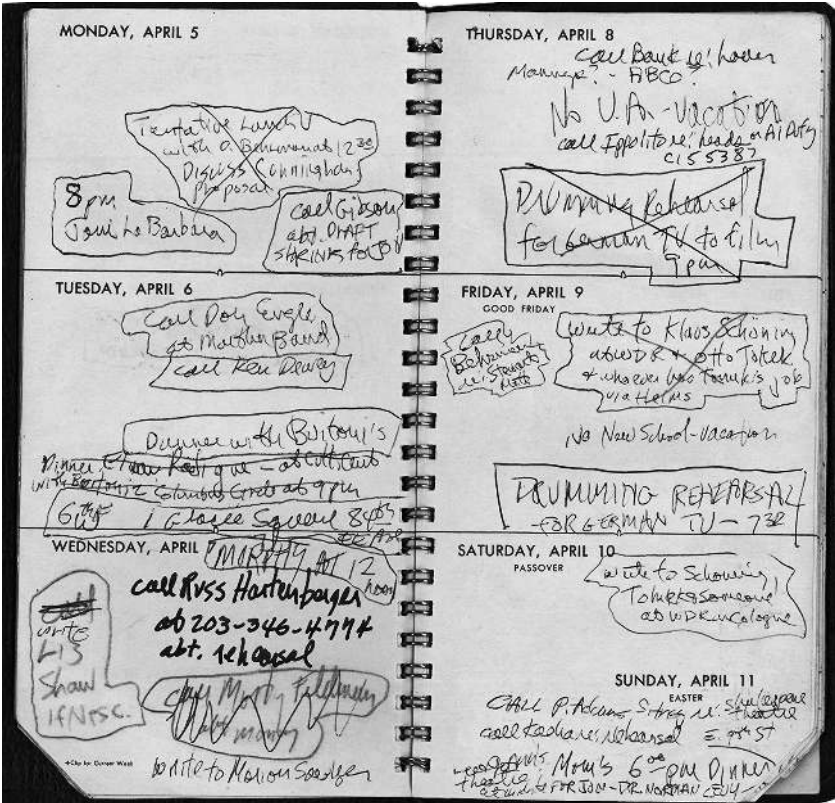 MONDAY, APRIL 5
Tentative Lunch
with D. Behrman at 12 30
DISCUSS Cunningham
Proposal
8 pm
Joan La Barbara
Call Gibson
abt. DRAFT
SHRINKS FOR JON
TUESDAY, APRIL 6
Call Don Engle
at Martha Baird
Call Ken Dewey
Dinner with Buitoni's
Dinner
with Buitoni's Columbus Circle at 9 pm
6
1 Gracie Square 84th
WEDNESDAY, APRIL
MURPHY AT 12
noon
call Russ Hartenberger
at 203-346-4774
abt. rehearsal
write
LIS
Shaw
if Nesc.
Call Morty Feldman
abt money
write to Marion
Clip for Current Week
THURSDAY, APRIL 8
Call Bank re: loan
Manager? - ABCO?
No U.A. - vacation
call Ippolito re: heads on
CI 5 5387
DRUMMING Rehearsal
for German TV to film
9 pm
FRIDAY, APRIL 9
GOOD FRIDAY
Call
Behrman
re: Stewart's
Write to Klaus Schöning
at WDR & Otto Tomek
& whoever has Tomek's job
via Helms
No New School - vacation
DRUMMING REHEARSAL
- FOR GERMAN TV - 7 30
SATURDAY, APRIL 10
PASSOVER
write to Schöning,
Tomek & someone
at WDR in Cologne
SUNDAY, APRIL 11
EASTER
CALL P. Adams Sitney re: Shakespeare
theatre
call re: Rehearsal E. St
Mom's 6 00 pm Dinner
theatre FOR JON - DR. NORMAN